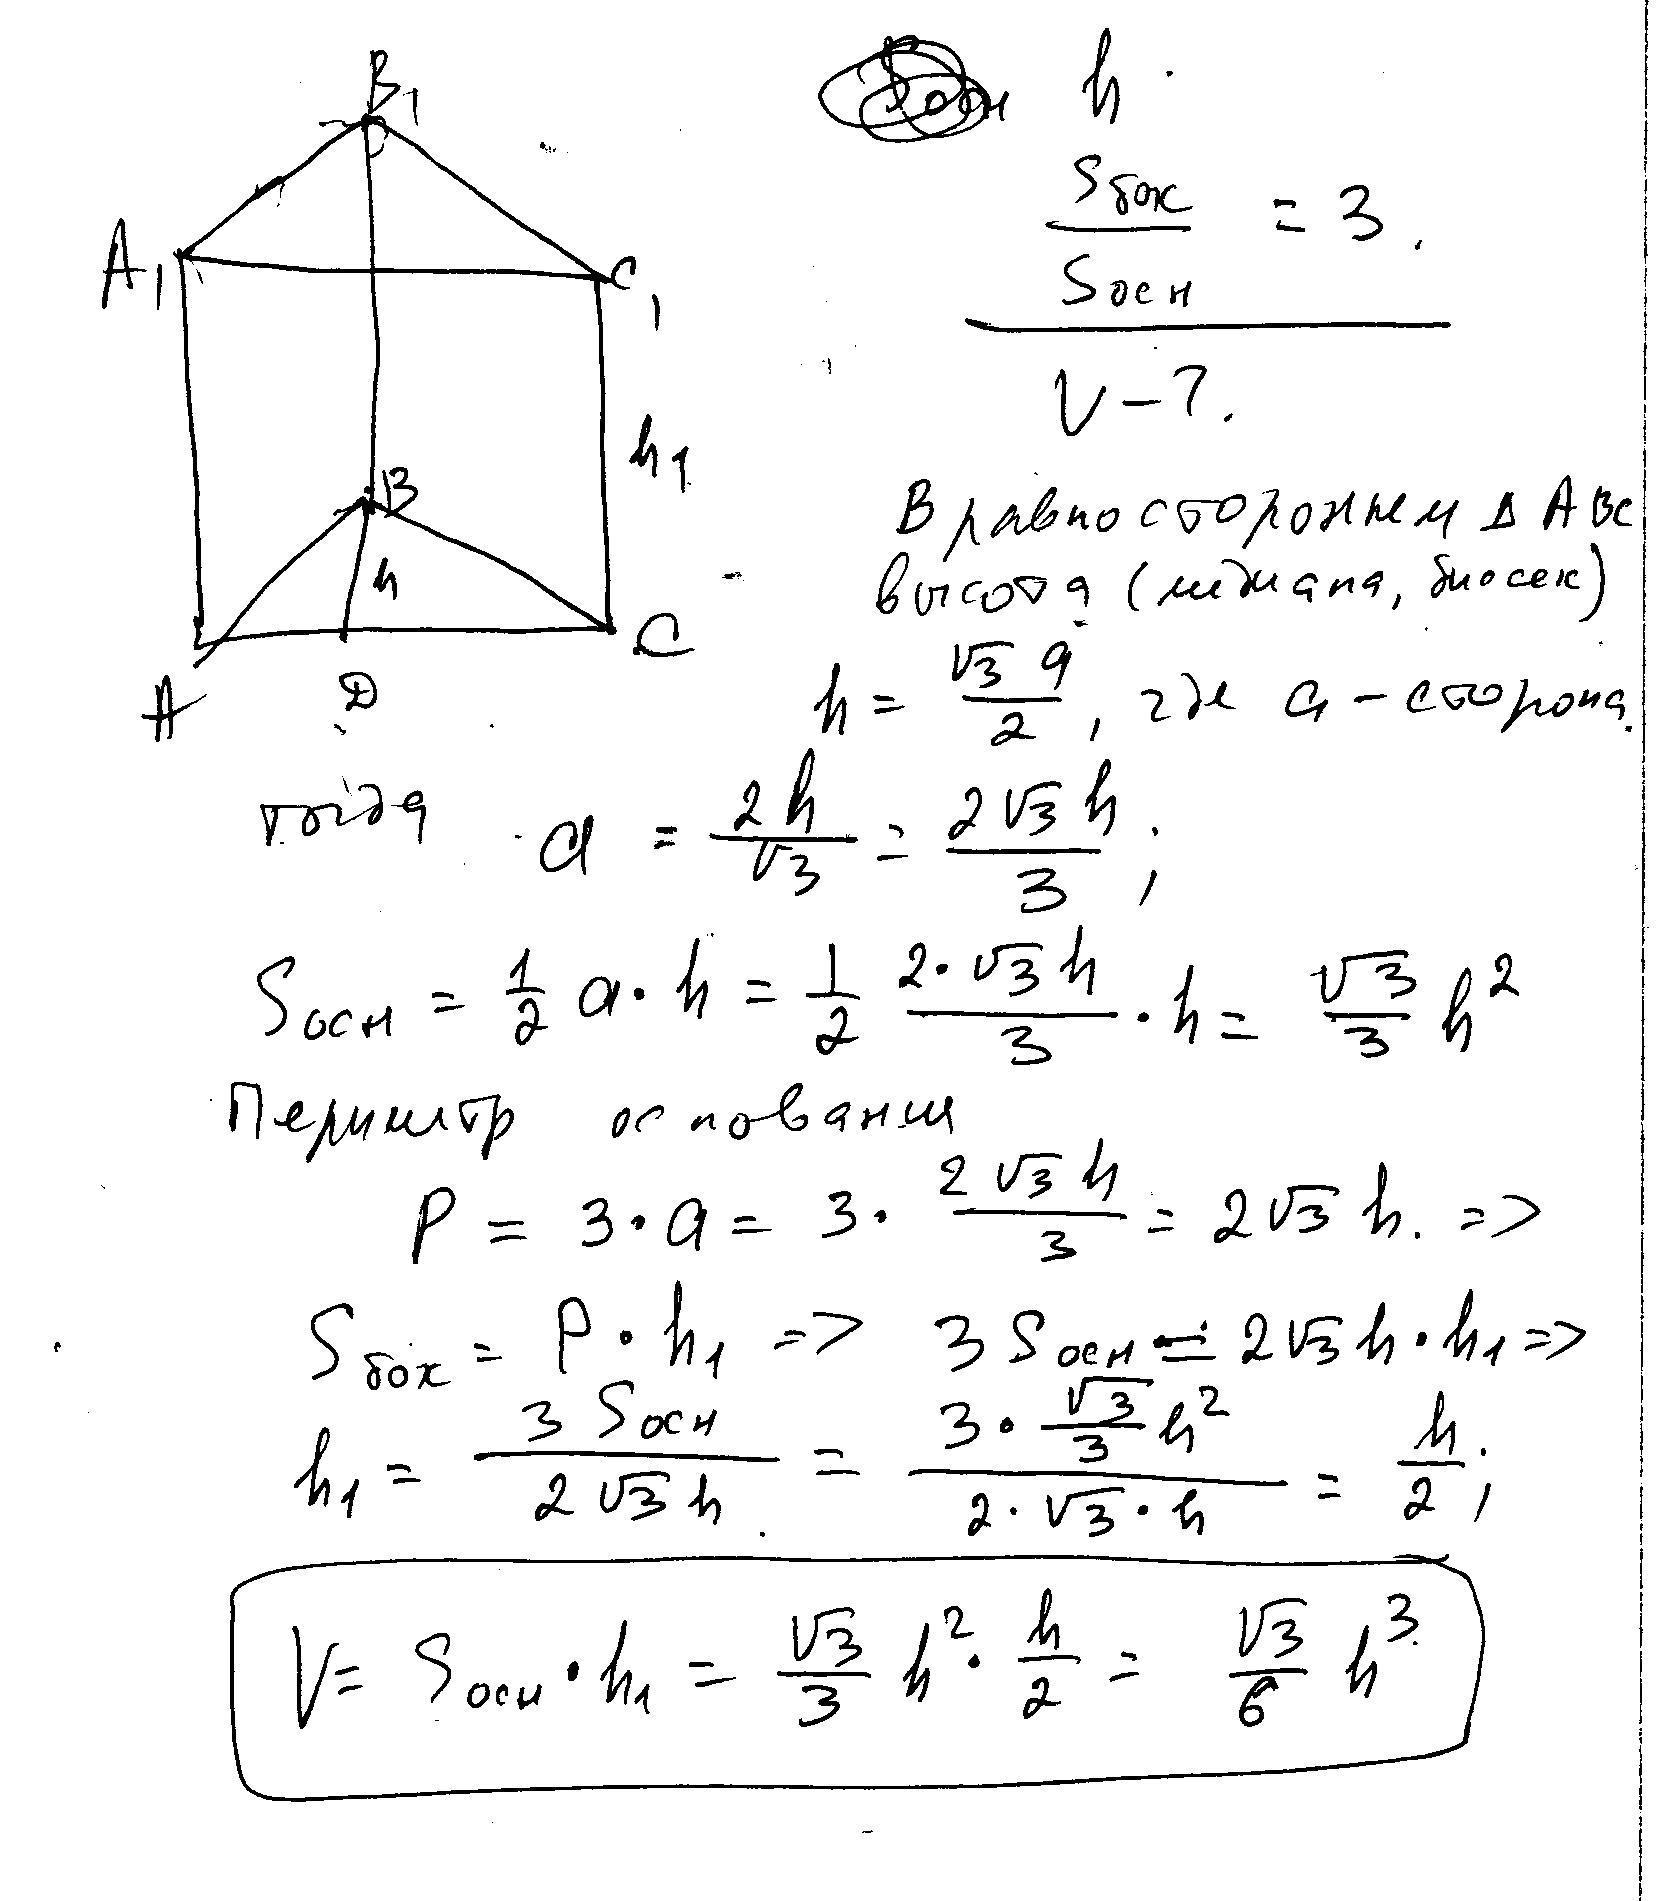 B₁
A₁
C₁
h₁
B
h
A
D
C
Sосн h
Sбок / Sосн = 3.
V – ?.
В равностороннем Δ ABC
высота (медиана, биссек)
h = √3 a / 2, где a – сторона.
тогда a = 2h / √3 = 2√3 h / 3;
Sосн = 1/2 a · h = 1/2 2·√3 h / 3 · h = √3 / 3 h²
Периметр основания
P = 3 · a = 3 · 2√3 h / 3 = 2√3 h. =>
Sбок = P · h₁ => 3 Sосн = 2√3 h · h₁ =>
h₁ = 3 Sосн / 2√3 h = 3 · √3/3 h² / 2·√3·h = h / 2;
V = Sосн · h₁ = √3 / 3 h² · h / 2 = √3 / 6 h³